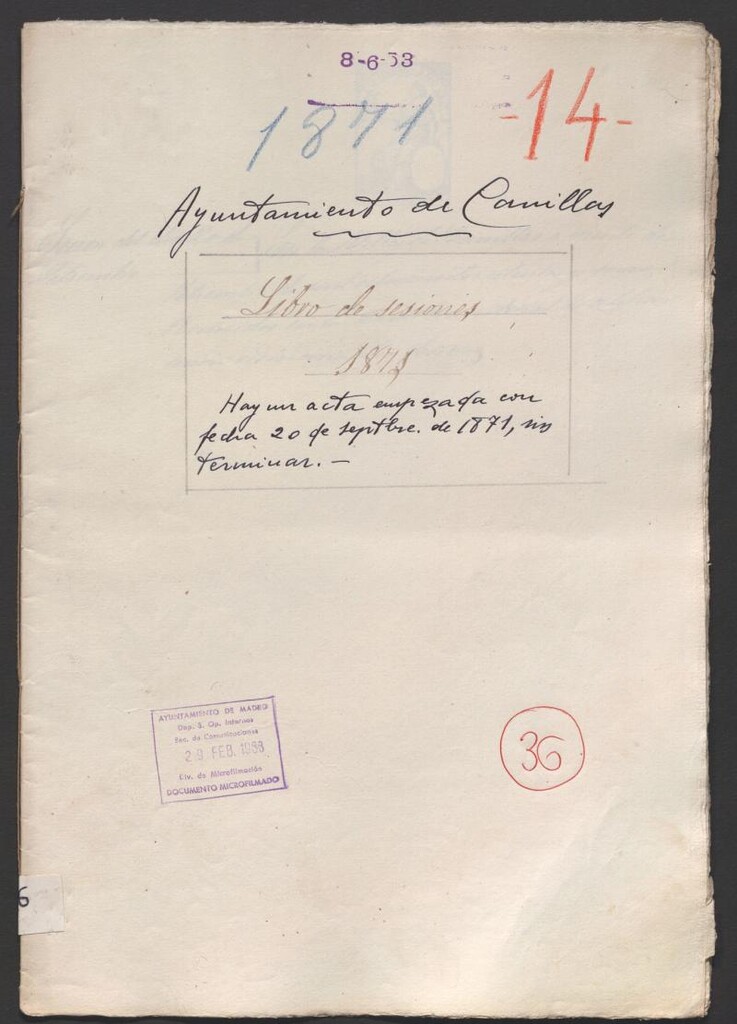 8-6-53
1871
-14-
Ayuntamiento de Canillas
Libro de sesiones
1871
Hay un acta empezada con
fecha 20 de septbre. de 1871, sin
terminar.—
AYUNTAMIENTO DE MADRID
Dep. S. Op. Internos
Sec. de Comunicaciones
FEB. 1968
Div. de Microfilmación
DOCUMENTO MICROFILMADO
36
6